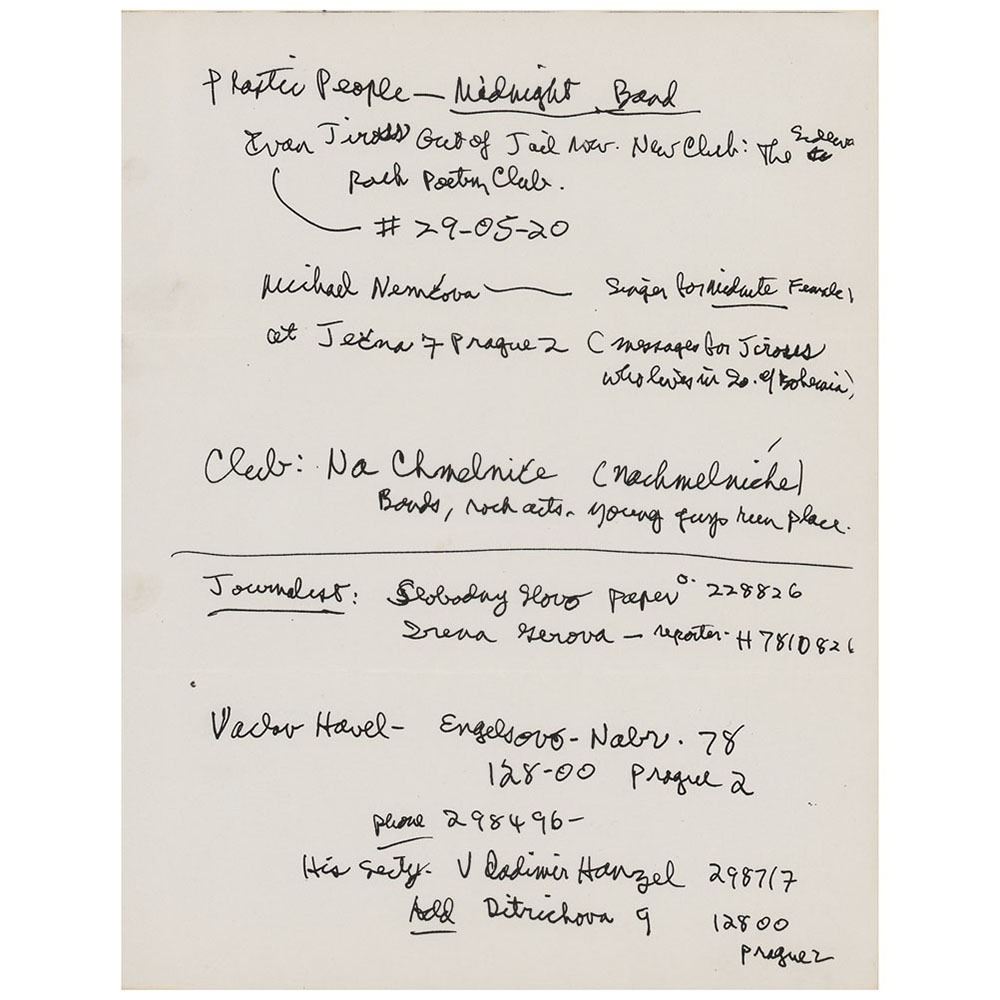 Plastic People — Midnight Band
Evan Jiross Out of Jail now. New Club: The
Rock Poetry Club.
# 29-05-20
Michael Nemcova — Singer for Midnite Female)
at Jecna 7 Prague 2 (messages for Jiross
who lives in So. of Bohemia)
Club: Na Chmelnice (nachmelniche)
Bands, rock acts - young guys run place.
Journalist: Slobodny Slovo paper O. 228826
Irena Gerova — reporter - H 7810826
Vaclav Havel - Engelsovo - Nabr. 78
128-00 Prague 2
phone 298496-
His secty. Vladimir Hanzel 298717
Add Ditrichova 9 12800
Prague 2